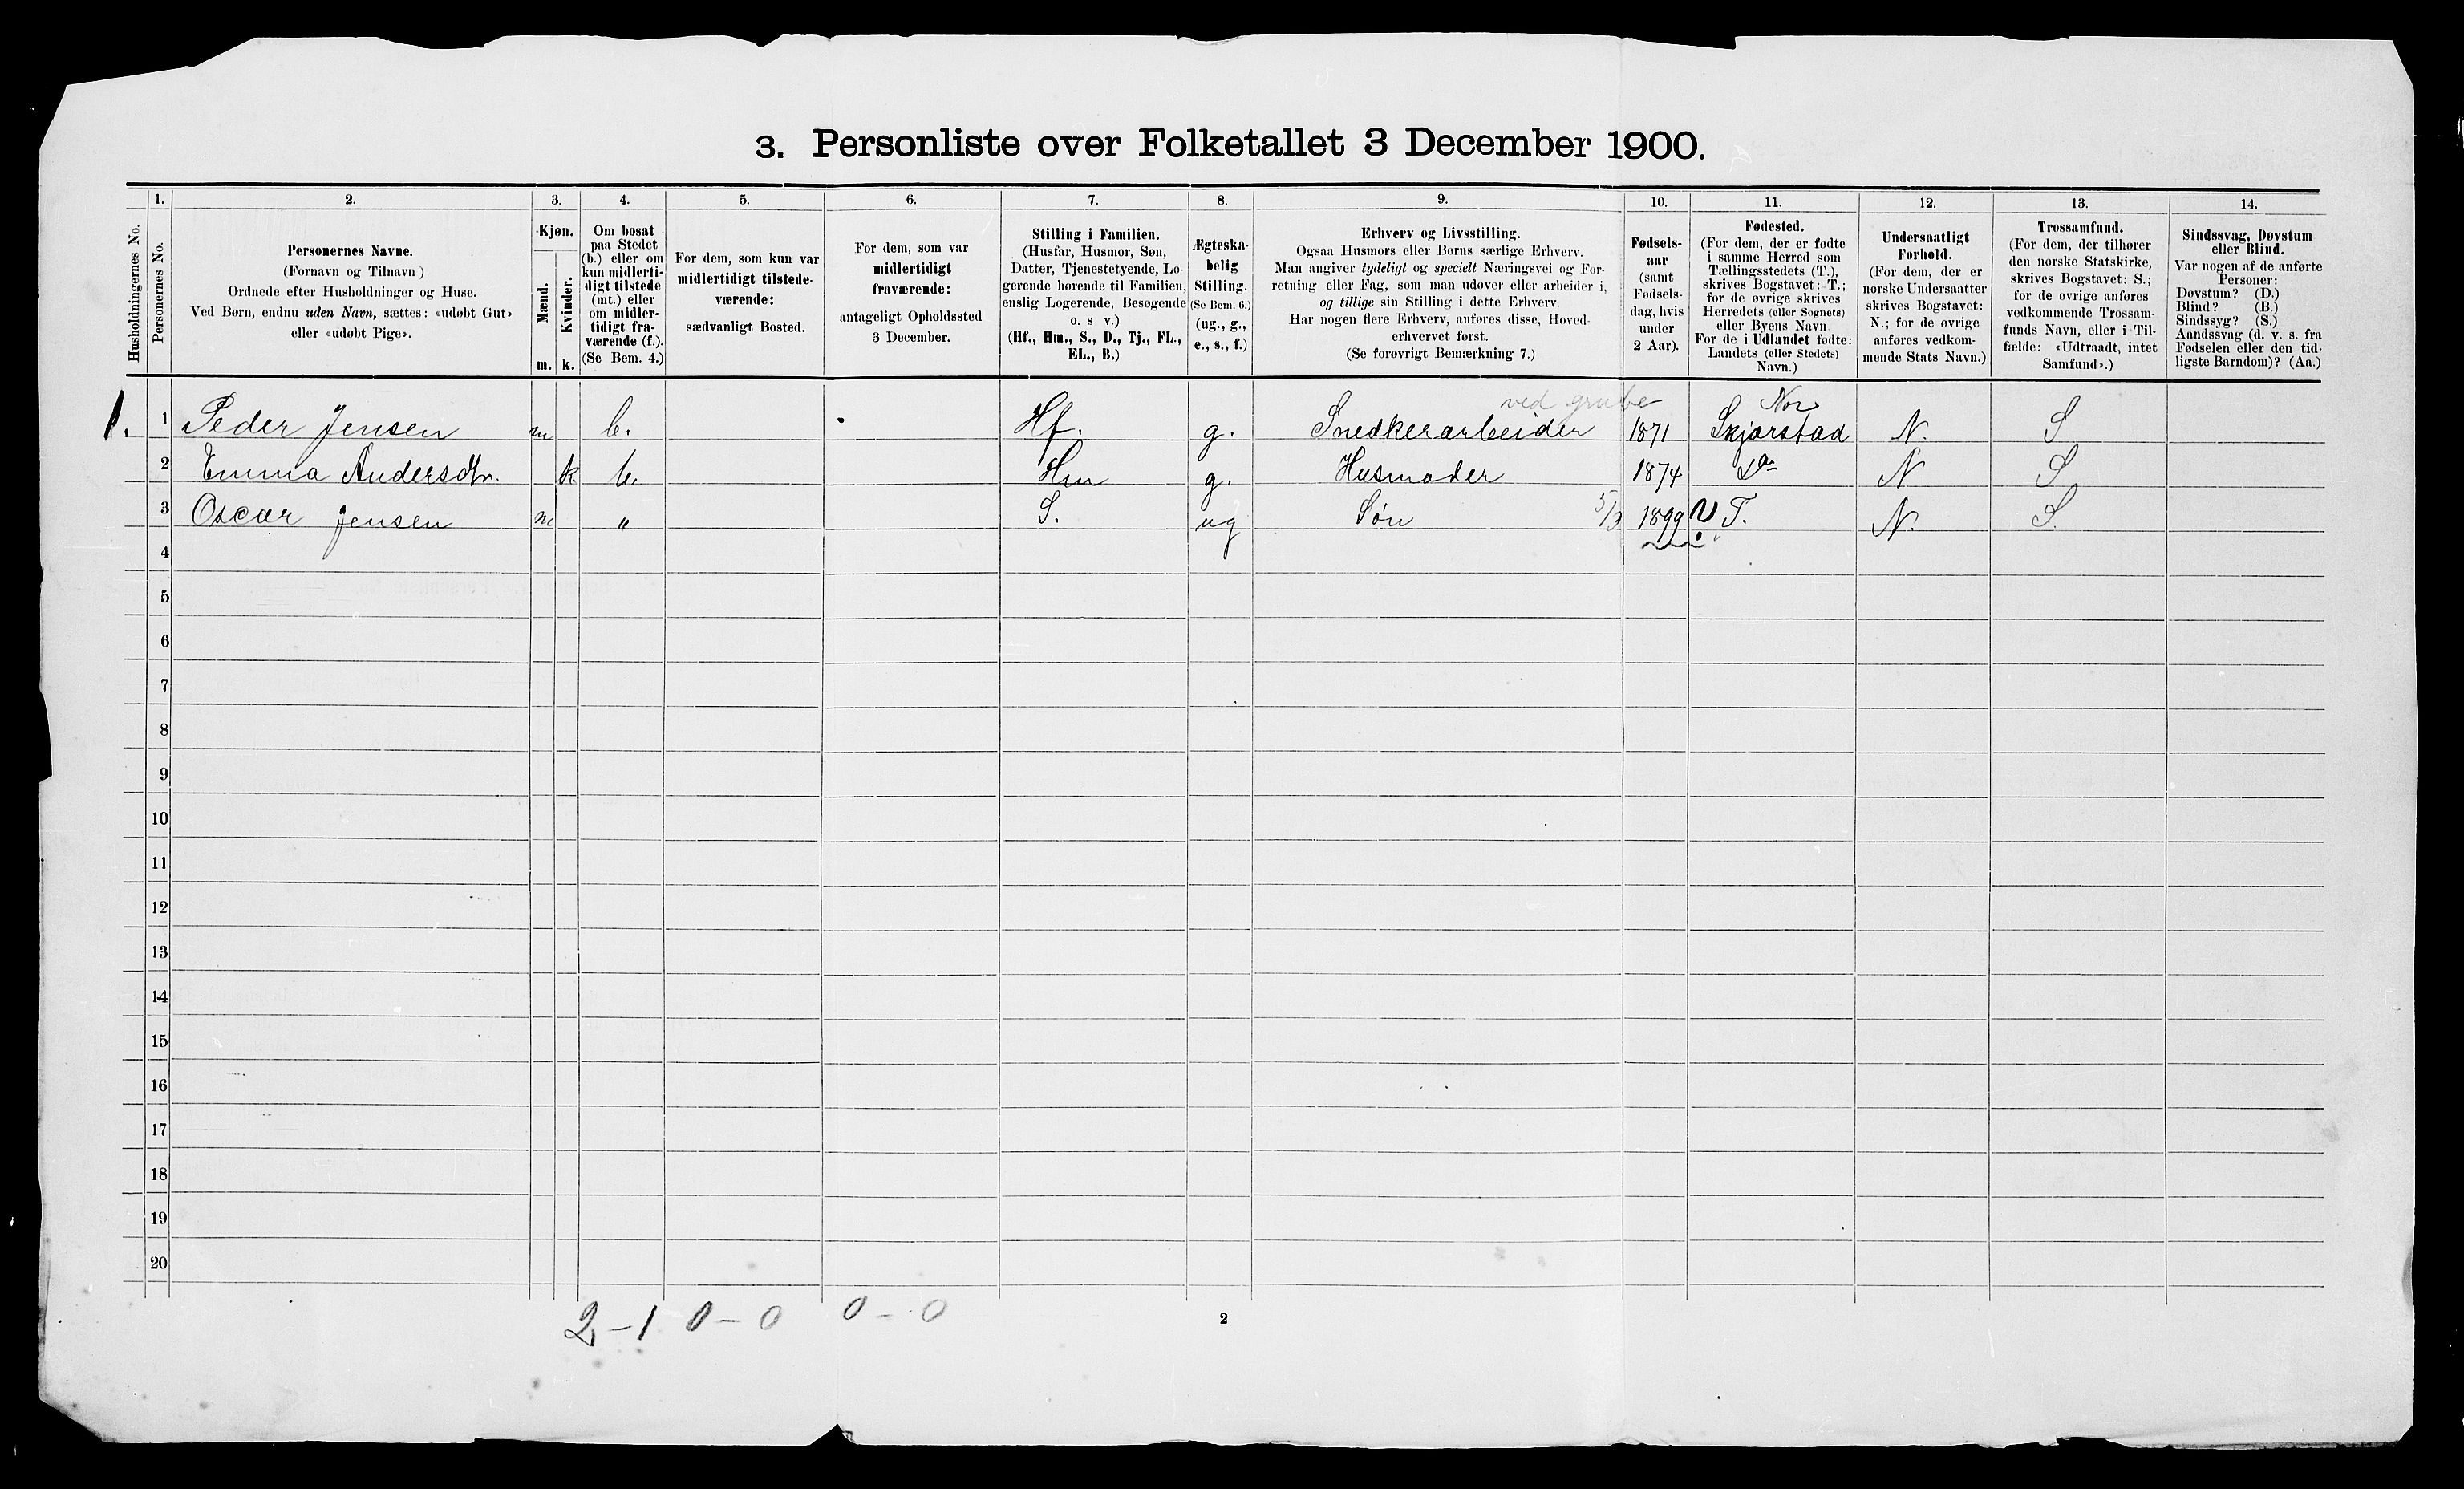 3. Personliste over Folketallet 3 December 1900.
Husholdningernes No.
1.
Personernes No.
2.
Personernes Navne.
(Fornavn og Tilnavn )
Ordnede efter Husholdninger og Huse.
Ved Børn, endnu uden Navn, sættes: «udøbt Gut»
eller «udøbt Pige».
3.
Kjøn.
Mænd.
Kvinder.
m. k.
4.
Om bosat
paa Stedet
(b.) eller om
kun midlerti-
digt tilstede
(mt.) eller
om midler-
tidigt fra-
værende (f.).
(Se Bem. 4.)
5.
For dem, som kun var
midlertidigt tilstede-
værende:
sædvanligt Bosted.
6.
For dem, som var
midlertidigt
fraværende:
antageligt Opholdssted
3 December.
7.
Stilling i Familien.
(Husfar, Husmor, Søn,
Datter, Tjenestetyende, Lo-
gerende hørende til Familien,
enslig Logerende, Besøgende
o. s v.)
(Hf., Hm., S., D., Tj., FL.,
EL., B.)
8.
Ægteska-
belig
Stilling.
(Se Bem. 6.)
(ug., g.,
e., s., f.)
9.
Erhverv og Livsstilling.
Ogsaa Husmors eller Børns særlige Erhverv.
Man angiver tydeligt og specielt Næringsvei og For-
retning eller Fag, som man udøver eller arbeider i,
og tillige sin Stilling i dette Erhverv.
Har nogen flere Erhverv, anføres disse, Hoved-
erhvervet først.
(Se forøvrigt Bemærkning 7.)
10.
Fødsels-
aar
(samt
Fødsels-
dag, hvis
under
2 Aar).
11.
Fødested.
(For dem, der er fødte
i samme Herred som
Tællingsstedets (T.),
skrives Bogstavet: T.;
for de øvrige skrives
Herredets (eller Sognets)
eller Byens Navn
For de i Udlandet fødte:
Landets (eller Stedets)
Navn.)
12.
Undersaatligt
Forhold.
(For dem, der er
norske Undersaatter
skrives Bogstavet:
N.; for de øvrige
anføres vedkom-
mende Stats Navn.)
13.
Trossamfund.
(For dem, der tilhører
den norske Statskirke,
skrives Bogstavet: S.;
for de øvrige anføres
vedkommende Trossam-
funds Navn, eller i Til-
fælde: «Udtraadt, intet
Samfund».)
14.
Sindssvag, Døvstum
eller Blind.
Var nogen af de anførte
Personer:
Døvstum? (D.)
Blind? (B.)
Sindssyg? (S.)
Aandssvag (d. v. s. fra
Fødselen eller den tid-
ligste Barndom)? (Aa.)
ved grube Nor
1. 1 Peder Jensen m b. Hf. g. Snedkerarbeider 1871 Skjærstad N. S
2 Emma Andersdtr. k b. Hm g. Husmoder 1874 do N S
3 Oscar Jensen m " S. ug Søn 5/3 1899 T. N. S.
4
5
6
7
8
9
10
11
12
13
14
15
16
17
18
19
20
2 - 1 0 - 0 0 - 0
2